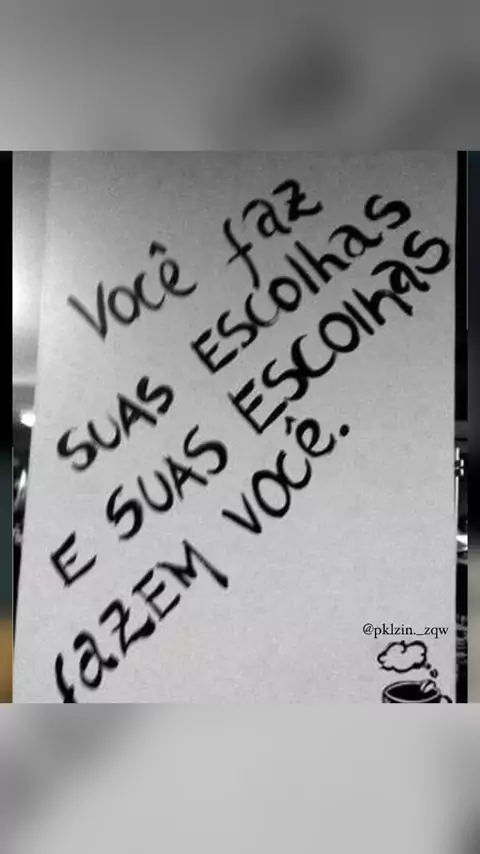 Você faz
SUAS ESCOlhAS
E SUAS ESCOlhAS
fAZEM VOCÊ.
@pklzin._zqw